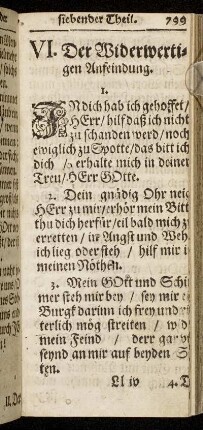 siebender Theil. 799
VI. Der Widerwerti-
gen Anfeindung.
1.
IN dich hab ich gehoffet/
HErr/ hilf daß ich nicht
zu schanden werd/ noch
ewiglich zu Spotte/ das bitt ich
dich / erhalte mich in deiner
Treu/ HErr GOtte.
2. Dein gnädig Ohr neig
HErr zu mir/ erhör mein Bitt
thu dich herfür/ eil bald mich z
erretten / in Angst und Weh
ich lieg oder steh / hilf mir i
meinen Nöthen.
3. Mein GOtt und Schi
mer steh mir bey / sey mir e
Burgk darinn ich frey und r
terlich mög streiten /
mein Feind /
seynd an mir auf beyden S
ten.
Ll iv 4. D